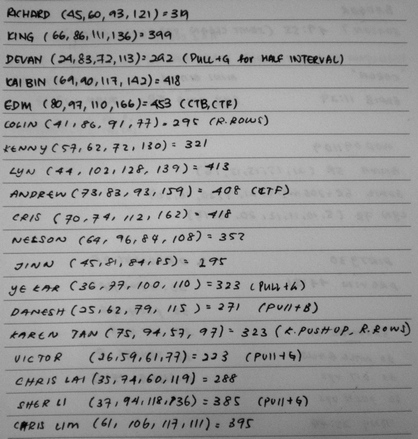 RICHARD (45,60,93,121)=319
KING (66,86,111,136)=399
DEVAN (24,83,72,113)=292 (PULL+G for HALF INTERVAL)
KAI BIN (69,90,117,142)=418
EDM (80,97,110,166)=453 (CTB,CTF)
COLIN (41,86,91,77)=295 (R.ROWS)
KENNY (57,62,72,130)=321
LYN (44,102,128,139)=413
ANDREW (73,83,93,159)=408 (CTF)
CRIS (70,74,112,162)=418
NELSON (64,96,84,108)=352
JINN (45,81,84,85)=295
YE KAR (36,77,100,110)=323 (PULL+G)
DANESH (25,62,79,115)=271 (PULL+B)
KAREN TAN (75,94,57,97)=323 (K.PUSHUP, R.ROWS)
VICTOR (26,59,61,77)=223 (PULL+G)
CHRIS LAI (35,74,60,119)=288
SHER LI (37,94,118,136)=385 (PULL+G)
CHRIS LIM (61,106,117,111)=395